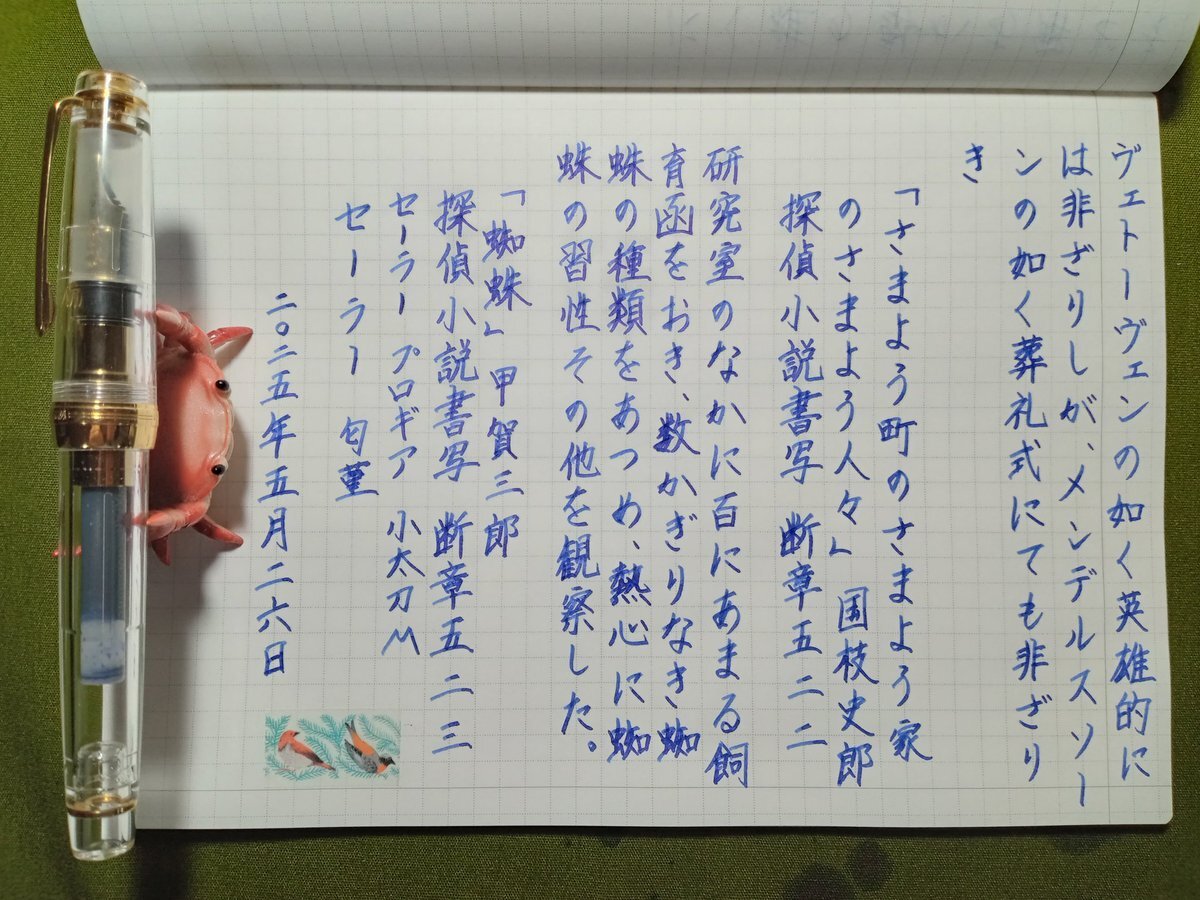 ヴェトーヴェンの如く英雄的に
は非ざりしが、メンデルスソー
ンの如く葬礼式にても非ざり
き
「さまよう町のさまよう家
のさまよう人々」 国枝史郎
探偵小説書写 断章五二二
研究室のなかに百にあまる飼
育函をおき、数かぎりなき蜘
蛛の種類をあつめ、熱心に蜘
蛛の習性その他を観察した。
「蜘蛛」甲賀三郎
探偵小説書写 断章五二三
セーラー プロギア 小太刀M
セーラー 匂菫
二〇二五年五月二六日